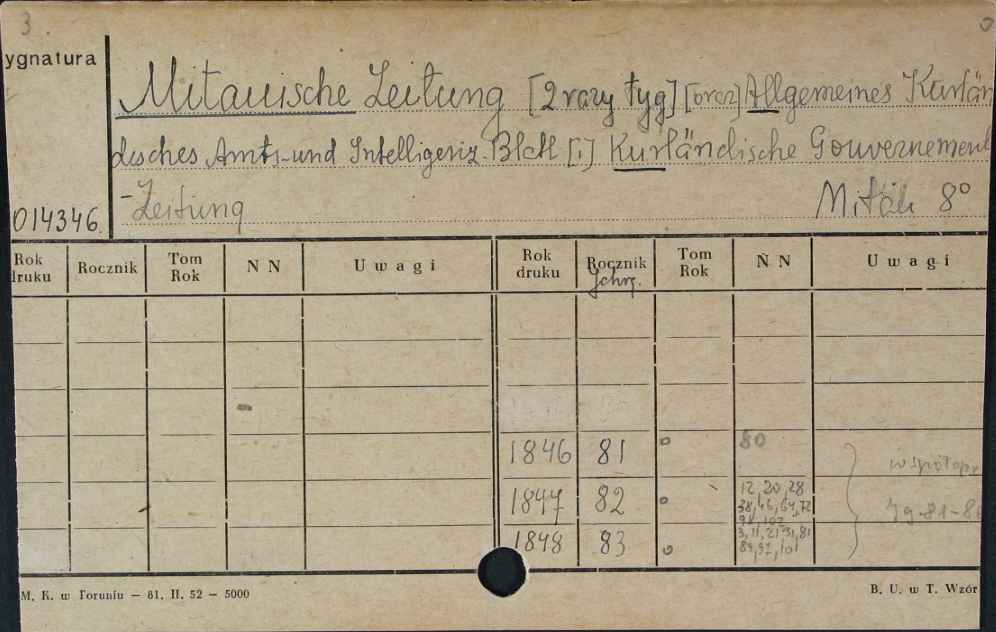 3
ygnatura
Mitauische Zeitung [2 razy tyg] [oraz] Allgemeines Kurlän
disches Amts-und Intelligenz-Blatt [i] Kurländische Gouvernement
-Zeitung Mitau 8°
014346
Rok druku Rocznik Tom Rok N N Uwagi Rok druku Rocznik Jahrg. Tom Rok N N Uwagi
1846 81 o 80
współopr
1847 82 o 12, 20, 28
38, 46, 64, 72
Jg. 81-8
1848 83 o 3, 11, 21, 31, 81
89, 91, 101
M. K. w Toruniu — 81. II. 52 — 5000 B. U. w T. Wzór